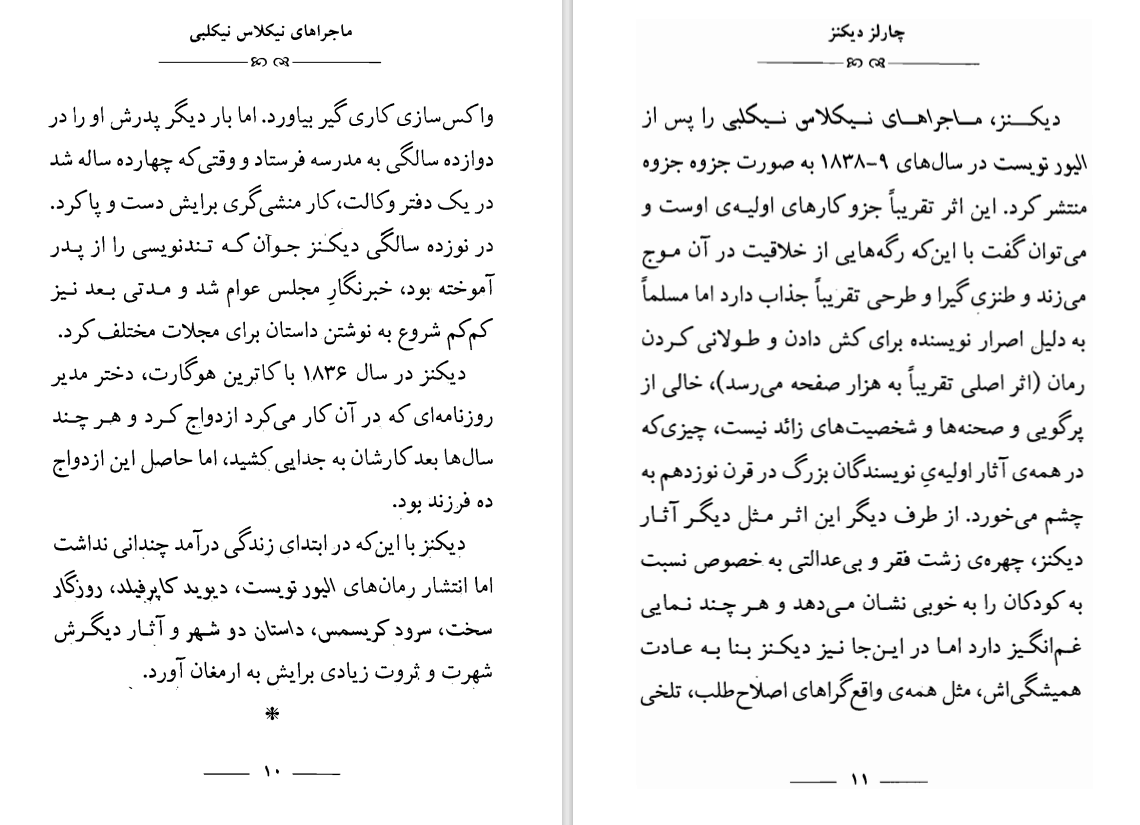 ماجراهای نیکلاس نیکلبی
واکس‌سازی کاری گیر بیاورد. اما بار دیگر پدرش او را در
دوازده سالگی به مدرسه فرستاد و وقتی‌که چهارده ساله شد
در یک دفتر وکالت، کار منشی‌گری برایش دست و پا کرد.
در نوزده سالگی دیکنز جوان که تندنویسی را از پدر
آموخته بود، خبرنگارِ مجلس عوام شد و مدتی بعد نیز
کم‌کم شروع به نوشتن داستان برای مجلات مختلف کرد.
دیکنز در سال ۱۸۳۶ با کاترین هوگارت، دختر مدیر
روزنامه‌ای که در آن کار می‌کرد ازدواج کرد و هر چند
سال‌ها بعد کارشان به جدایی کشید، اما حاصل این ازدواج
ده فرزند بود.
دیکنز با این‌که در ابتدای زندگی درآمد چندانی نداشت
اما انتشار رمان‌های الیور تویست، دیوید کاپرفیلد، روزگار
سخت، سرود کریسمس، داستان دو شهر و آثار دیگرش
شهرت و ثروت زیادی برایش به ارمغان آورد.
۱۰
چارلز دیکنز
دیکنز، ماجراهای نیکلاس نیکلبی را پس از
الیور تویست در سال‌های ۹-۱۸۳۸ به صورت جزوه جزوه
منتشر کرد. این اثر تقریباً جزو کارهای اولیه‌ی اوست و
می‌توان گفت با این‌که رگه‌هایی از خلاقیت در آن موج
می‌زند و طنزی گیرا و طرحی تقریباً جذاب دارد اما مسلماً
به دلیل اصرار نویسنده برای کش دادن و طولانی کردن
رمان (اثر اصلی تقریباً به هزار صفحه می‌رسد)، خالی از
پرگویی و صحنه‌ها و شخصیت‌های زائد نیست، چیزی‌که
در همه‌ی آثار اولیه‌یِ نویسندگان بزرگ در قرن نوزدهم به
چشم می‌خورد. از طرف دیگر این اثر مثل دیگر آثار
دیکنز، چهره‌ی زشت فقر و بی‌عدالتی به خصوص نسبت
به کودکان را به خوبی نشان می‌دهد و هر چند نمایی
غم‌انگیز دارد اما در این‌جا نیز دیکنز بنا به عادت
همیشگی‌اش، مثل همه‌ی واقع‌گراهای اصلاح‌طلب، تلخی
۱۱